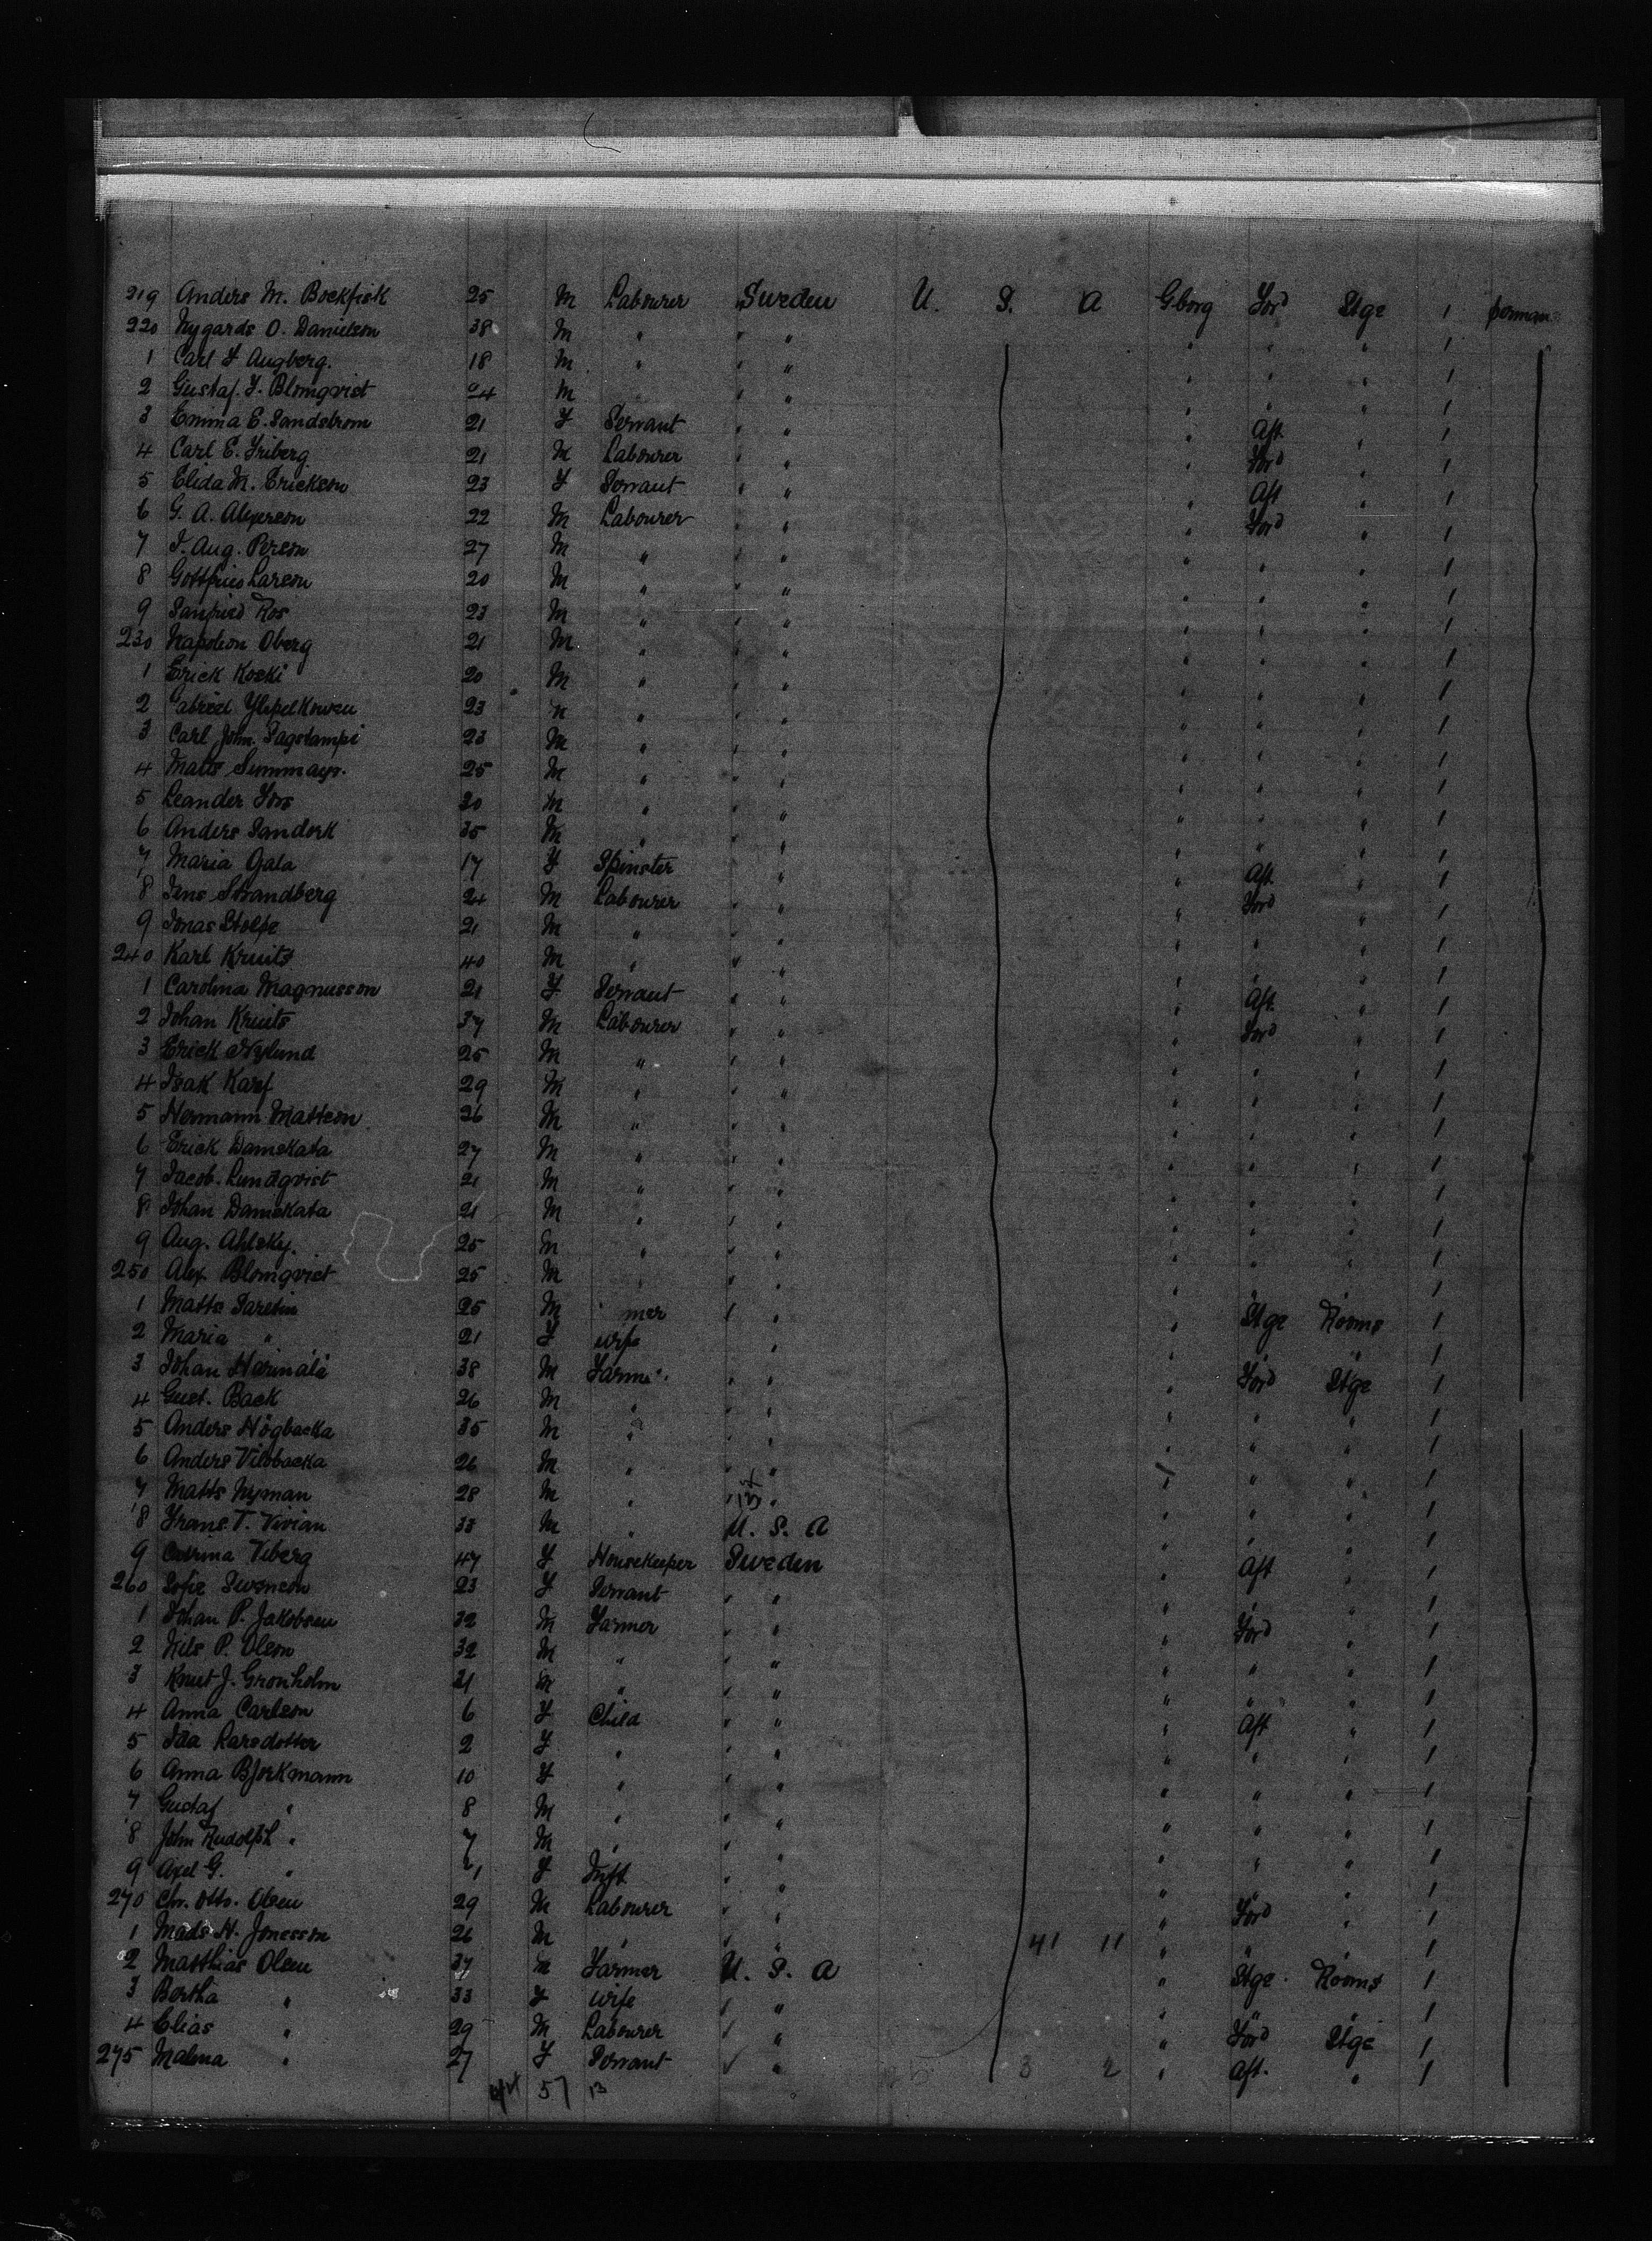 219 Anders M. Backfisk 25 M Labourer Sweden U. S. A Gborg Ford Stge 1 perman
220 Nygards O. Danielson 38 M " " " " " " 1
1 Carl F Augberg. 18 M " " " " " " 1
2 Gustaf. F. Blomqvist 24 M " " " " " " 1
3 Emma E. Sandstrom 21 F Servant " " " Aft " 1
4 Carl E. Friberg 21 M Labourer " " " Ford " 1
5 Elida M. Erickson 23 F Servant " " " Aft " 1
6 G. A. Alxerson 22 M Labourer " " " Ford " 1
7 J. Aug. Person 27 M " " " " " " 1
8 Gottfried Larson 20 M " " " " " " 1
9 Sanfried Ros 23 M " " " " " " 1
230 Napoleon Oberg 21 M " " " " " " 1
1 Erick Koski 20 M " " " " " " 1
2 Gabriel 23 M " " " " " " 1
3 Carl John. Pagstampi 23 M " " " " " " 1
4 Matts 25 M " " " " " " 1
5 Leander Fors 20 M " " " " " " 1
6 Anders Sandork 35 M " " " " " " 1
7 Maria Gala 17 F Spinster " " Aft " 1
8 Jens Strandberg 24 M Labourer " " " Ford " 1
9 Jonas Stolpe 21 M " " " " " " 1
240 Karl Kruits 40 M " " " " " " 1
1 Carolina Magnusson 21 F Servant " " " Aft. " 1
2 Johan Kruits 37 M Labourer " " " Ford " 1
3 Erick Nylund 25 M " " " " " " 1
4 Isak Karf 29 M " " " " " " 1
5 Hermann Mattson 26 M " " " " " " 1
6 Erick Damskata 27 M " " " " " " 1
7 Jacob. Lundqvist 21 M " " " " " " 1
8 Johan Damskata 21 M " " " " " " 1
9 Aug. Ahlsky. 25 M " " " " " " 1
250 Alex Blomqvist 25 M " " " " " 1
1 Matts 25 M mer " " " Stge Rooms 1
2 Maria " 21 F wife " " " " 1
3 Johan Harinala 38 M Farm " " " Ford Stge 1
4 Gust. Back 26 M " " " " " " 1
5 Anders Högbacka 35 M " " " " " " 1
6 Anders 26 M " " " " " " 1
7 Matts Nyman 28 M " " " " " " 1
8 Frans T. Vivian 33 M " U. S. A " " " 1
9 Catrina Viberg 47 F Housekeeper Sweden " Aft " 1
260 Sofie Swenson 23 F Servant " " " " " 1
1 Johan P. Jakobsen 32 M Farmer " " " Ford " 1
2 Nils P. Olson 32 M " " " " " " 1
3 Knut J. Gronholm 21 M " " " " " " 1
4 Anna Carlson 6 F Child " " " Aft " 1
5 Ida Larsdotter 2 F " " " " " " 1
6 Anna Bjorkmann 10 F " " " " " " 1
7 Gustaf " 8 M " " " " " " 1
8 John Rudolph " 7 M " " " " " " 1
9 Axel G. " 1 F Inft " " " " " 1
270 Chr. Otto. Olsen 29 M Labourer " " " Ford " 1
1 Mads H. Jonsson 26 M " " " 41 11 " " " 1
2 Matthias Olsen 37 M Farmer U. S. A " Stge. Rooms 1
3 Bertha " 33 F wife " " " " " 1
4 Elias " 29 M Labourer " " " Ford Stge 1
275 Malma " 27 F Servant " " 3 2 " Aft. " 1
44 57 13